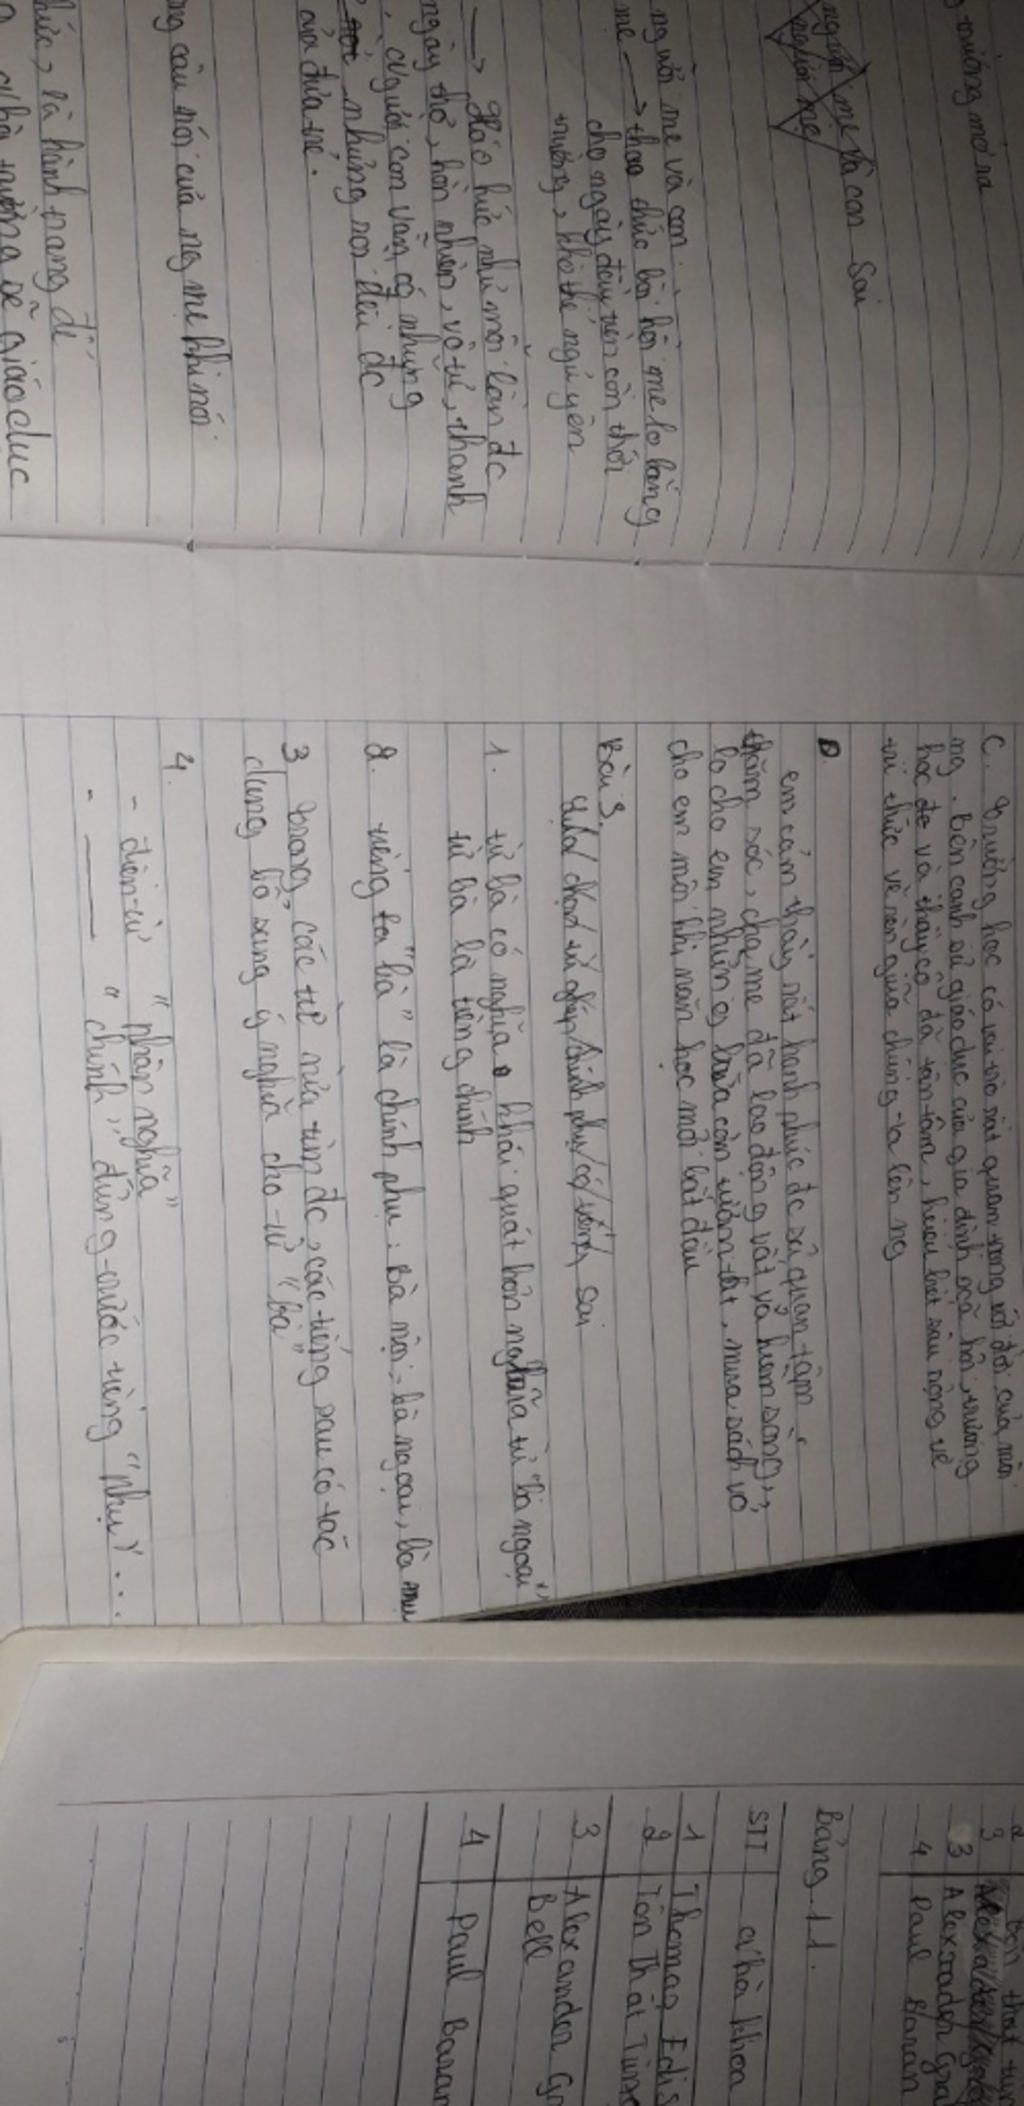 trường mở ra
người mẹ và con sai
người mẹ
người mẹ và con.
mẹ → thao thức bồi hồi mẹ lo lắng
cho ngày đầu tiên con tới
trường, không thể ngủ yên
→ Háo hức như mỗi lần đc
ngây thơ, hồn nhiên, vô tư, thanh
, người con vẫn có nhưng
những nơi đều đc
của đứa trẻ.
ng câu nói của ng mẹ khi nói
thức, là hành trang để
nhà trường về giáo dục
C. Trường học có vai trò rất quan trọng với đời của mỗi
ng. Bên cạnh sự giáo dục của gia đình xã hội, trường
học và thầy cô đã tận tâm, hiểu biết sâu rộng về
tri thức về rèn giũa chúng ta lên ng
D.
em cảm thấy rất hạnh phúc đc sự quan tâm
chăm sóc, cha mẹ đã lao động vất vả
lo cho em những bữa cơm tươm tất, mua sách vở
cho em mỗi khi năm học mới bắt đầu
Bài 3.
sai
1. từ bà có nghĩa khái quát hơn nghĩa từ "bà ngoại"
từ bà là tiếng chính
2. tiếng ta "bà" là chính phụ: Bà nội, bà ngoại, bà
3 trong các từ vừa tìm đc, các tiếng sau có tác
dụng bổ sung ý nghĩa cho từ "bà"
4.
- điền từ "phân nghĩa"
- —— " chính", đứng trước tiếng "phụ"...
2
3
3 Alexander Gra
4 Paul Baran
Bảng 1.1.
STT nhà khoa
1 Thomas Edis
2 Tôn Thất Tùng
3 Alexander Gr
Bell
4 Paul Baran